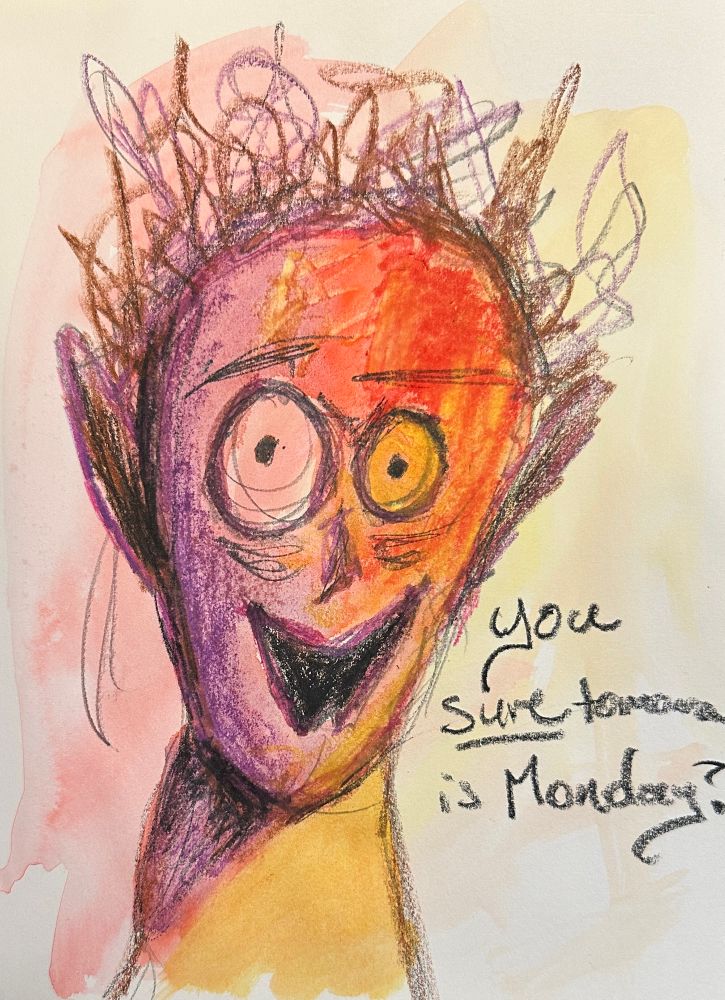 you
sure tomorrow
is Monday?